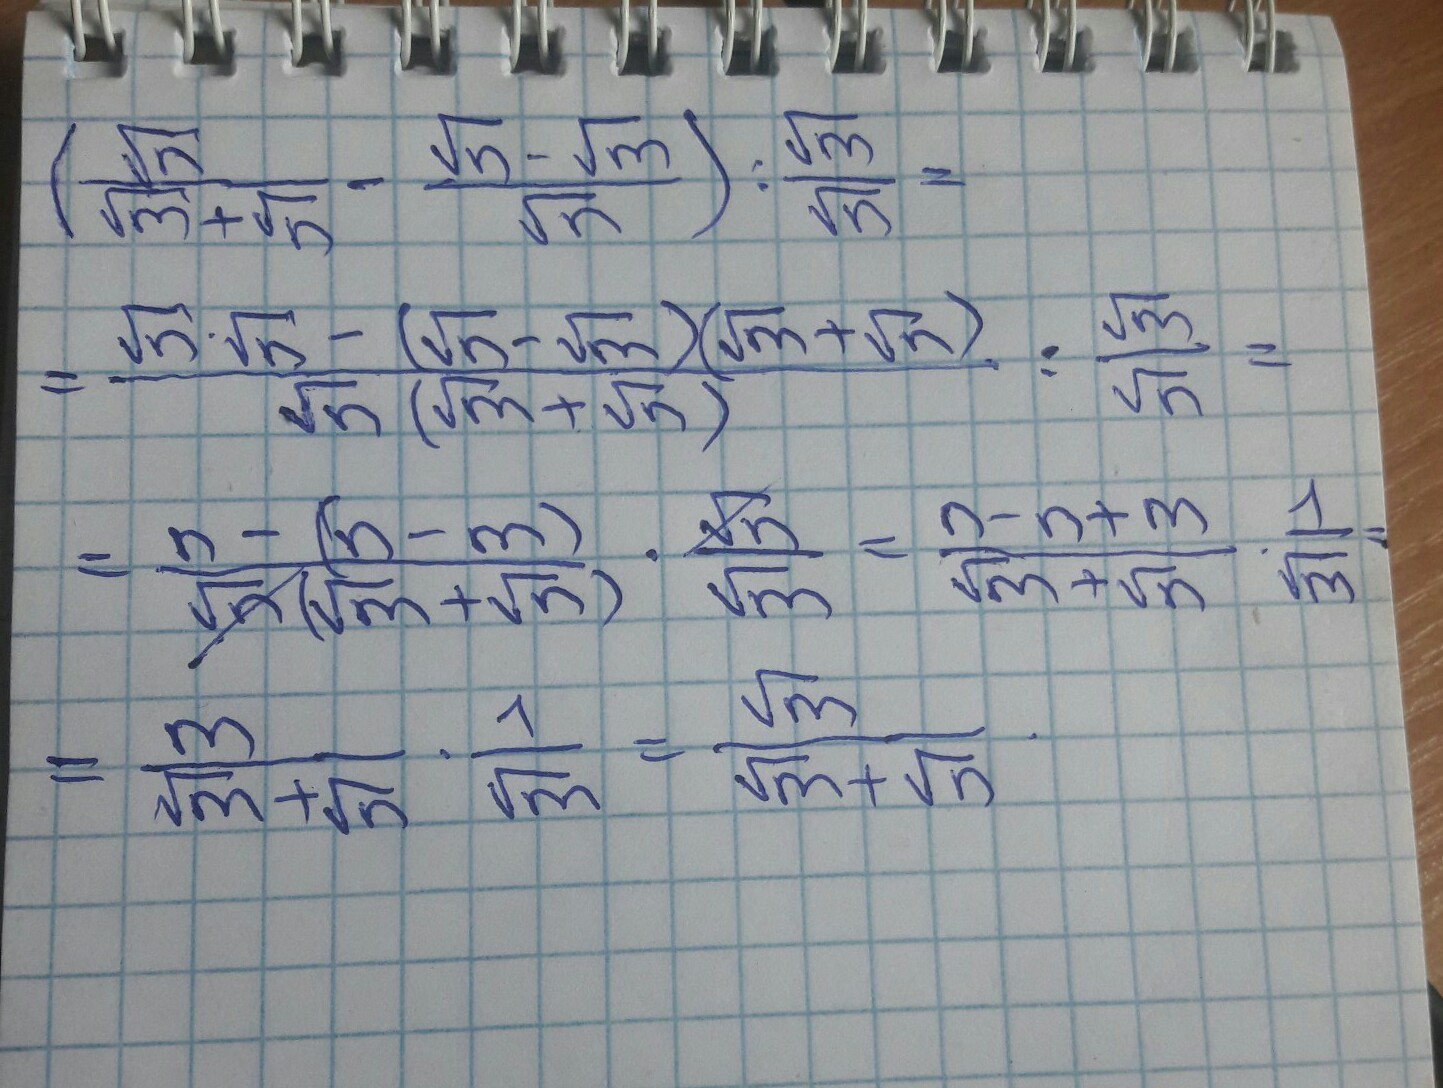 (√n/(√m+√n) - (√n-√m)/√n) : √m/√n =
= (√n·√n - (√n-√m)(√m+√n))/(√n(√m+√n)) : √m/√n =
= (n-(n-m))/(√n(√m+√n)) · √n/√m = (n-n+m)/(√m+√n) · 1/√m =
= m/(√m+√n) · 1/√m = √m/(√m+√n).